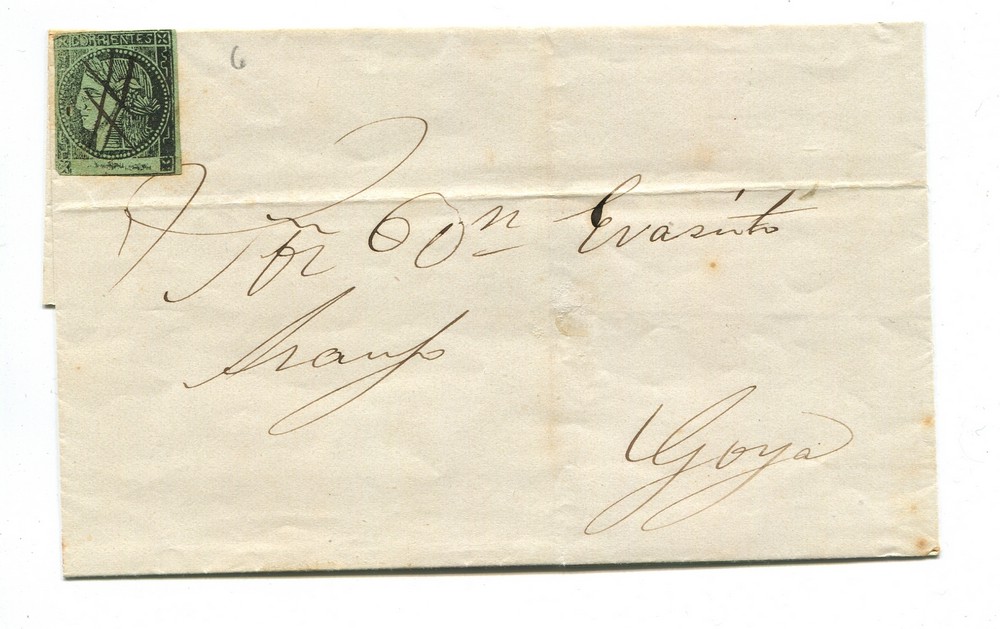 CORRIENTES
6
Sor Don Evaristo
Araujo
Goya